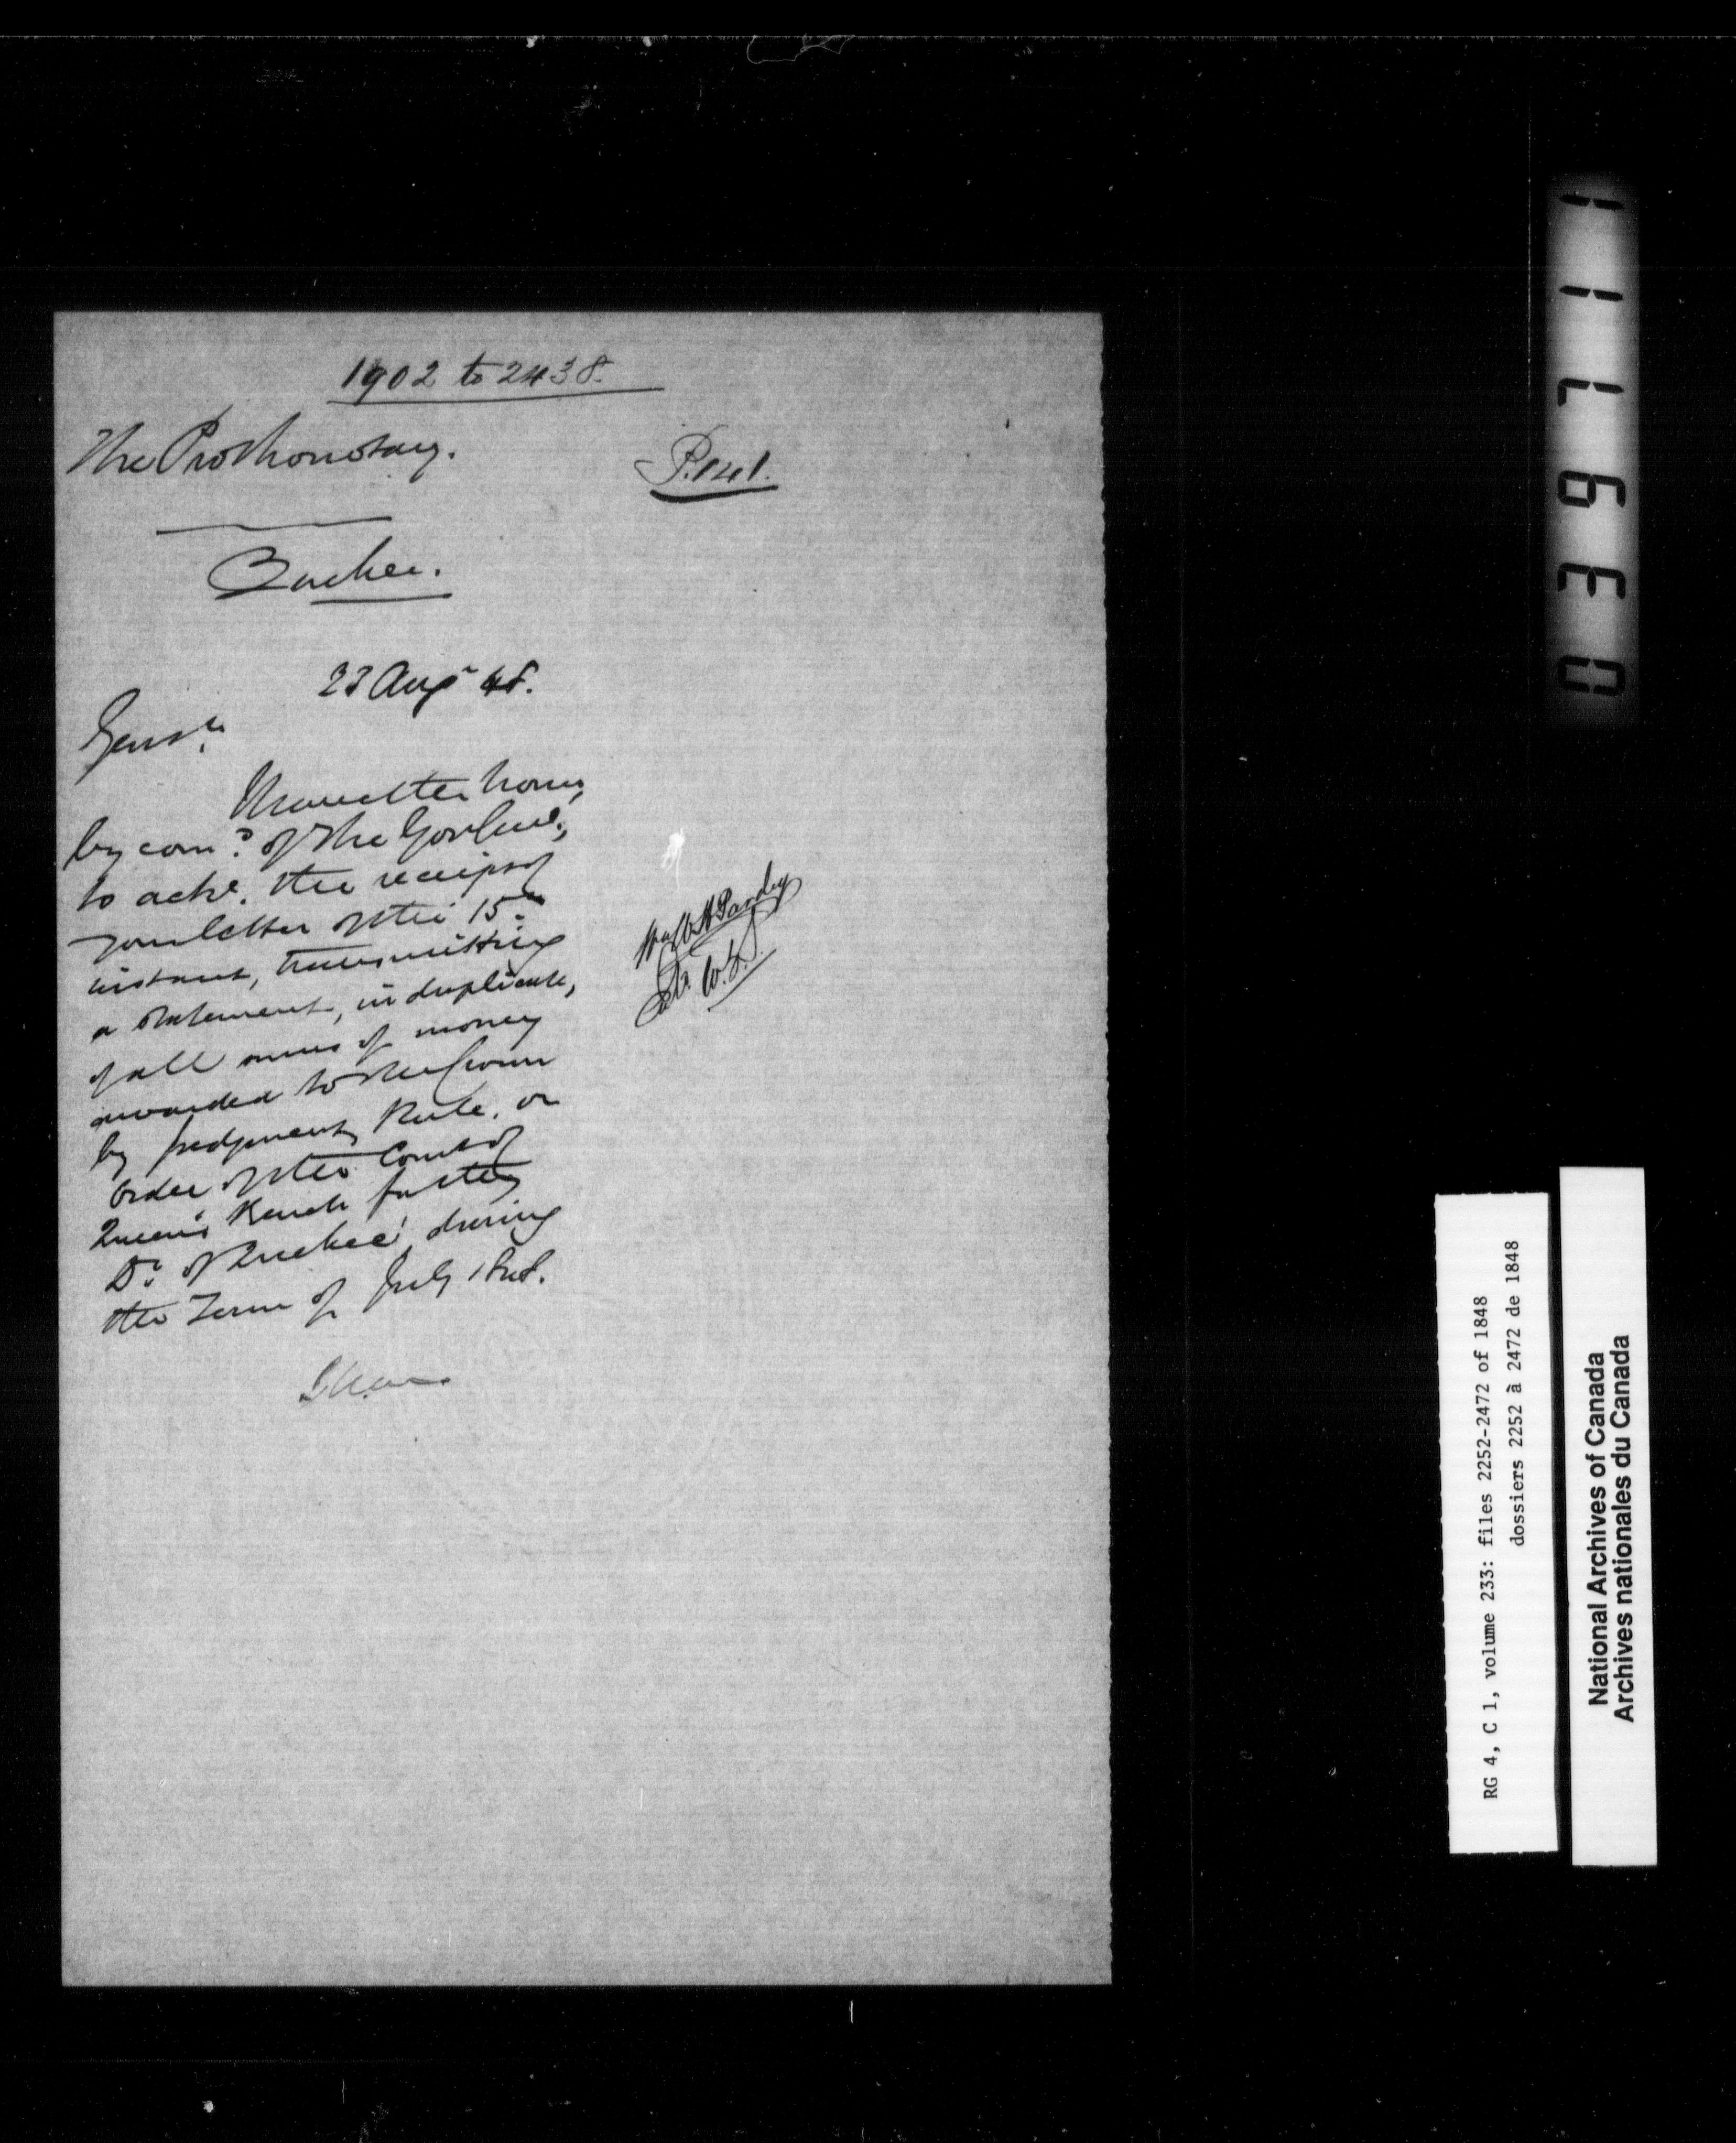 1902 to 2438.
The Prothonotary.
P.141.
Quebec.
23 Aug 48.
Gentn.
I have the honor,
by comd. of the Gov Genl.,
to acke. the receipt of
your letter of the 15th
instant, transmitting
a statement, in duplicate,
of all sums of money
awarded to the Crown
by judgment, Rule, or
Order of the Court of
Queen's Bench for the
Dt. of Quebec, during
the Term of July 1848.
I have
0 3 9 7 1 1
RG 4, C 1, volume 233: files 2252-2472 of 1848
dossiers 2252 à 2472 de 1848
National Archives of Canada
Archives nationales du Canada